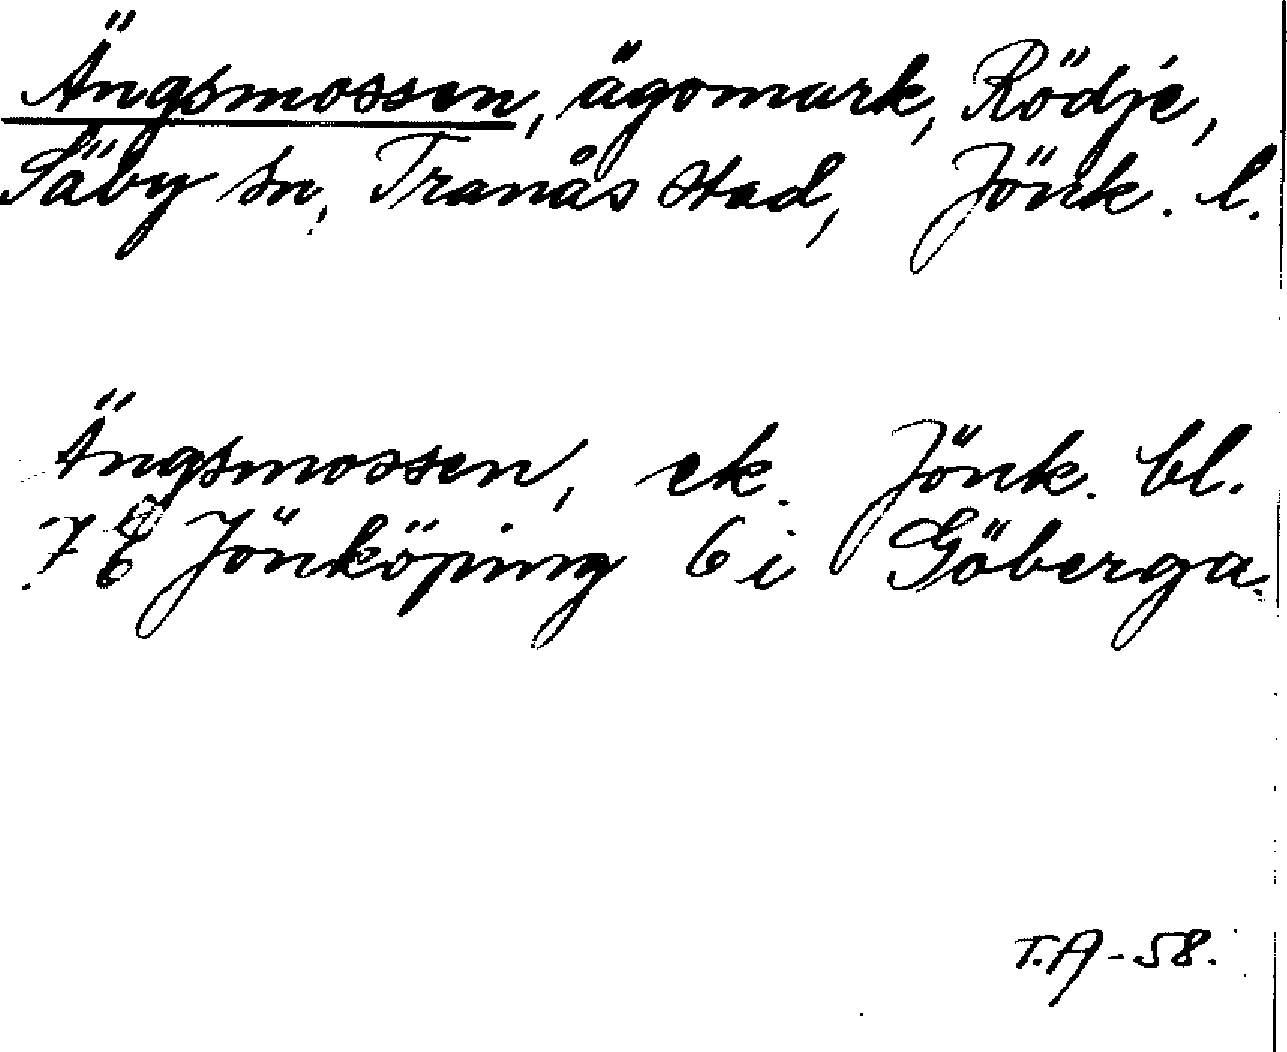 Ängsmossen, ägomark, Rödje,
Säby sn, Tranås stad, Jönk. l.
Ängsmossen, ek. Jönk. bl.
7 E Jönköping 6 i Göberga.
T.A-58.